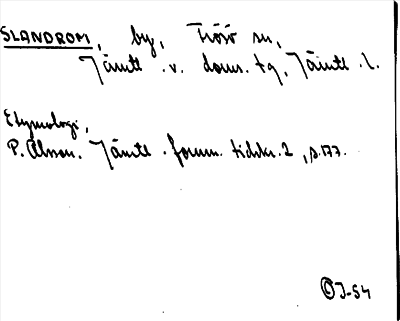 SLANDROM, by, Frösö sn,
Jämtl. v. doms. tg, Jämtl. l.
Etymologi,
P. Olsson. Jämtl. fornm. tidskr. 2, s. 177.
© J-54